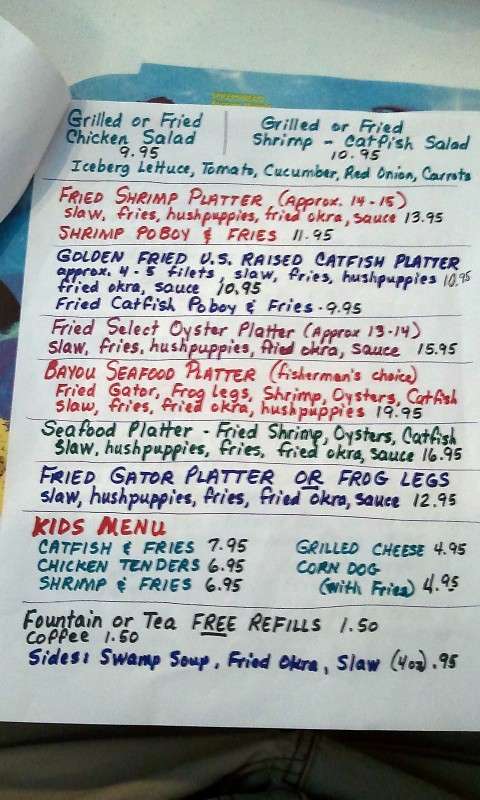 Grilled or Fried
Chicken Salad
9.95
Grilled or Fried
Shrimp - Catfish Salad
10.95
Iceberg Lettuce, Tomato, Cucumber, Red Onion, Carrots
FRIED SHRIMP PLATTER (Approx. 14-15)
slaw, fries, hushpuppies, fried okra, sauce 13.95
SHRIMP POBOY & FRIES 11.95
GOLDEN FRIED U.S. RAISED CATFISH PLATTER
approx. 4-5 filets, slaw, fries, hushpuppies 10.95
fried okra, sauce 10.95
Fried Catfish Poboy & Fries - 9.95
Fried Select Oyster Platter (Approx 13-14)
slaw, fries, hushpuppies, fried okra, sauce 15.95
BAYOU SEAFOOD PLATTER (fisherman's choice)
Fried Gator, Frog Legs, Shrimp, Oysters, Catfish
slaw, fries, fried okra, hushpuppies 19.95
Seafood Platter - Fried Shrimp, Oysters, Catfish
Slaw, hushpuppies, fries, fried okra, sauce 16.95
FRIED GATOR PLATTER OR FROG LEGS
slaw, hushpuppies, fries, fried okra, sauce 12.95
KIDS MENU
CATFISH & FRIES 7.95
CHICKEN TENDERS 6.95
SHRIMP & FRIES 6.95
GRILLED CHEESE 4.95
CORN DOG
(with Fries) 4.95
Fountain or Tea FREE REFILLS 1.50
Coffee 1.50
Sides: Swamp Soup, Fried Okra, Slaw (4oz) .95